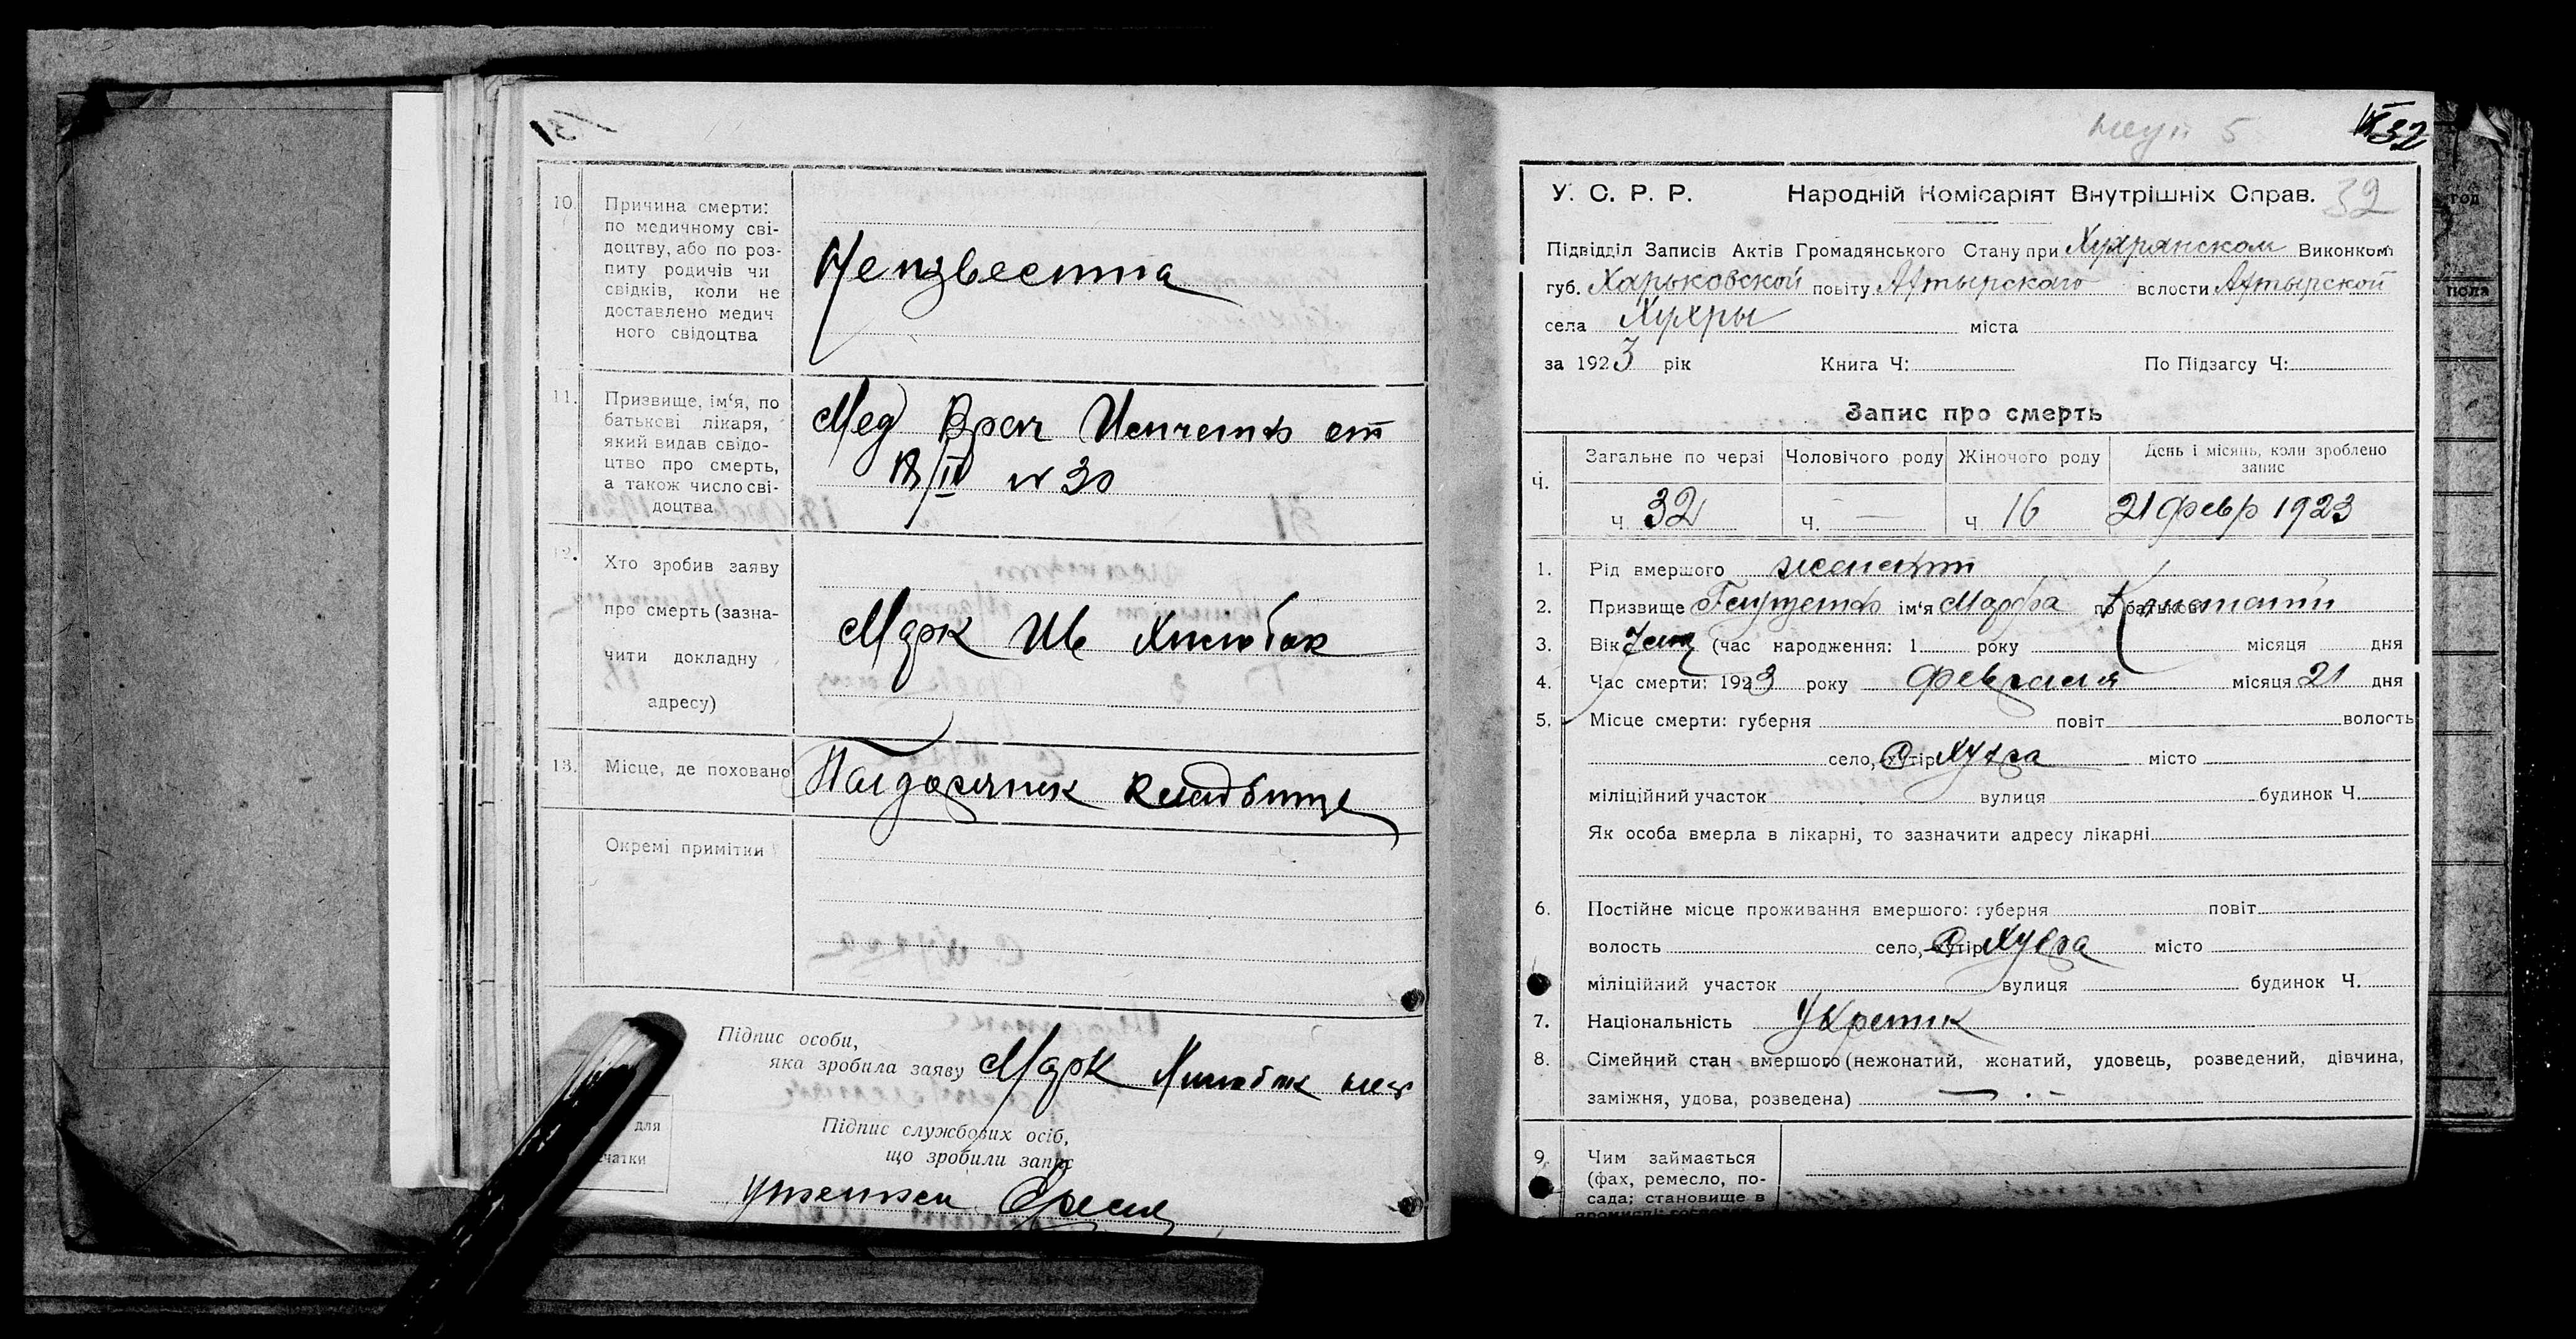 31
10. Причина смерти:
по медичному сві-
доцтву, або по роз-
питу родичів чи
свідків, коли не
доставлено медич
ного свідоцтва
Неизвестна
11. Призвище, ім'я, по
батькові лікаря,
який видав свідо-
цтво про смерть,
а також число сві-
доцтва
Мед Врач от
18/IV № 30
12. Хто зробив заяву
про смерть (зазна-
чити докладну
адресу)
Марк Ив
13. Місце, де поховано
кладбище
Окремі примітки
Підпис особи,
яка зробила заяву Марк
Підпис службових осіб,
що зробили запис
для
чатки
5
32
У. С. Р. Р. Народній Комісаріят Внутрішніх Справ. 32
Підвідділ Записів Актів Громадянського Стану при Хухрянском Виконком
губ. Харьковской повіту Ахтырскаго волости Ахтырской
села Хухры міста
за 1923 рік Книга Ч: По Підзагсу Ч:
Запис про смерть
Ч. Загальне по черзі Чоловічого роду Жіночого роду День і місяць, коли зроблено
запис
Ч 32 Ч. — Ч 16 21 февр 1923
1. Рід вмершого женский
2. Призвище ім'я Марфа по батькові
3. Вік (час народження: 1 року місяця дня
4. Час смерти: 1923 року Февраля місяця 21 дня
5. Місце смерти: губерня повіт волость
село, хутір Хухра місто
міліційний участок вулиця будинок Ч.
Як особа вмерла в лікарні, то зазначити адресу лікарні
6. Постійне місце проживання вмершого: губерня повіт
волость село, хутір Хухра місто
міліційний участок вулиця будинок Ч.
7. Національність
8. Сімейний стан вмершого (нежонатий, жонатий, удовець, розведений, дівчина,
заміжня, удова, розведена) —
9. Чим займається
(фах, ремесло, по-
сада; становище в